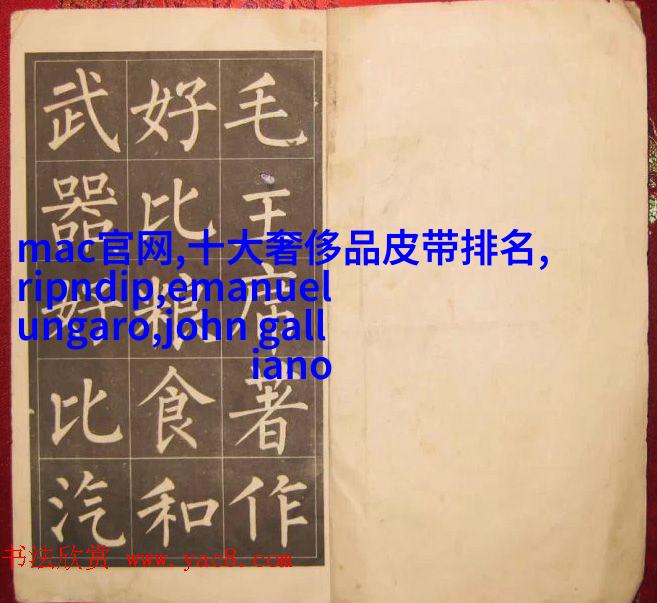 毛主席著作
好比粮食和
武器好比汽
mac官网,十大奢侈品皮带排名,
ripndip,emanuel
ungaro,john gall
iano
书法欣赏 www.yac8.com